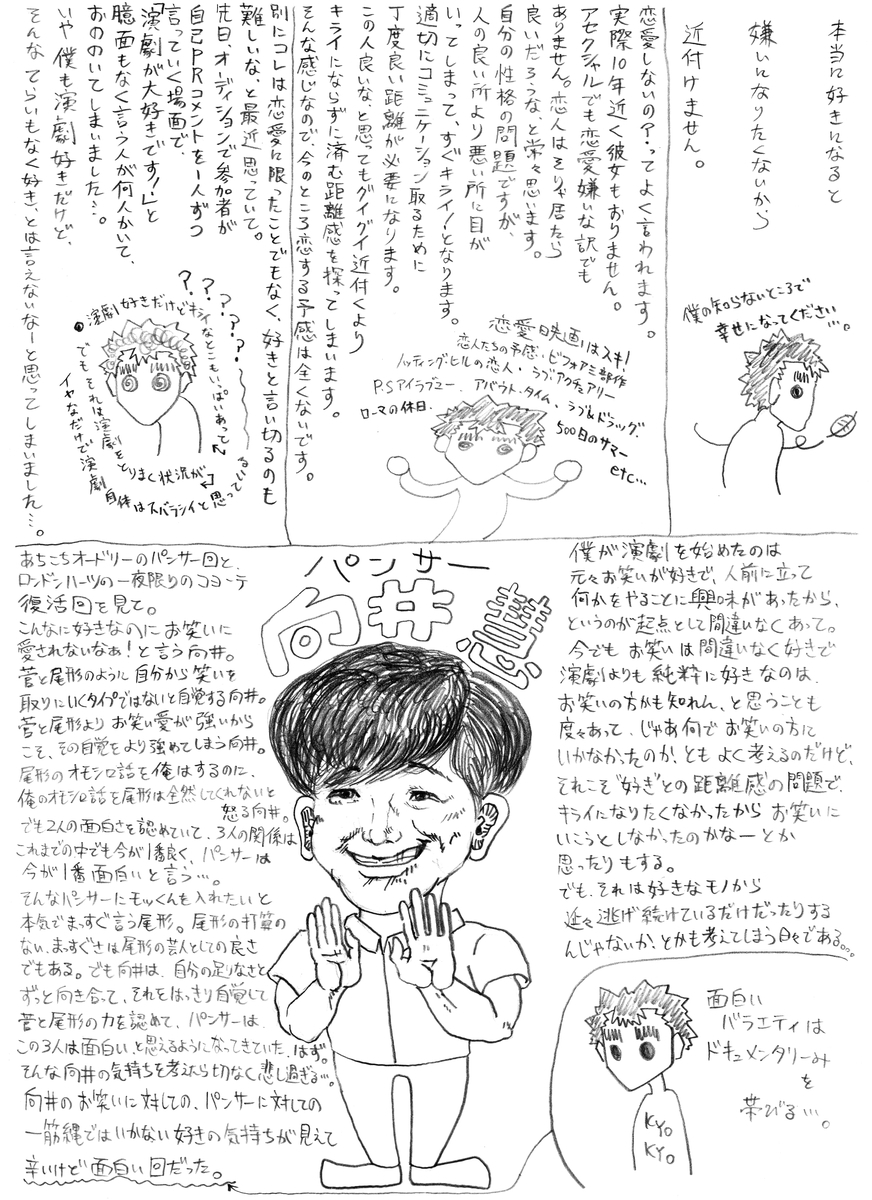 本当に好きになると
嫌いになりたくないから
近付けません。
僕の知らないところで
幸せになってください…。
恋愛しないの？ってよく言われます。
実際10年近く彼女もおりません。
アセクシャルでも恋愛嫌いな訳でも
ありません。恋人はそりゃ居たら
良いだろうな、と常々思います。
自分の性格の問題ですが、
人の良い所より悪い所に目が
いってしまって、すぐキライ！となります。
適切にコミュニケーション取るために
丁度良い距離が必要になります。
この人良いな、と思ってもグイグイ近付くより
キライにならずに済む距離感を探ってしまいます。
そんな感じなので、今のところ恋する予感は全くないです。
恋愛映画はスキ！
恋人たちの予感・ビフォア三部作
ノッティングヒルの恋人・ラブアクチュアリー
P.Sアイラブユー、アバウト・タイム、ラブ&ドラッグ、
ローマの休日、
500日のサマー
etc…
別にコレは恋愛に限ったことでもなく、好きと言い切るのも
難しいな、と最近思っていて。
先日、オーディションで参加者が
自己PRコメントを1人ずつ
言っていく場面で、
「演劇が大好きです！」と
臆面もなく言う人が何人かいて、
おののいてしまいました…。
いや僕も演劇好きだけど、
そんなてらいもなく好き、とは言えないなーと思ってしまいました…。
？？？？？？
演劇好きだけどキライなとこもいっぱいあって
でもそれは演劇をとりまく状況が
イヤなだけで演劇自体はスバラシイと思っている
僕が演劇を始めたのは
元々お笑いが好きで、人前に立って
何かをやることに興味があったから、
というのが起点として間違いなくあって。
今でもお笑いは間違いなく好きで
演劇よりも純粋に好きなのは、
お笑いの方かも知れん、と思うことも
度々あって、じゃあ何でお笑いの方に
いかなかったのか、ともよく考えるのだけど、
それこそ“好き”との距離感の問題で、
キライになりたくなかったからお笑いに
いこうとしなかったのかなーとか
思ったりもする。
でも、それは好きなモノから
延々逃げ続けているだけだったりする
んじゃないか、とかも考えてしまう日々である…。
面白い
バラエティは
ドキュメンタリーみ
を
帯びる…。
KYO
KYO
パンサー
向井慧
あちこちオードリーのパンサー回と、
ロンドンハーツの一夜限りのコヨーテ
復活回を見て。
こんなに好きなのにお笑いに
愛されないなぁ！と言う向井。
菅と尾形のように自分から笑いを
取りにいくタイプではないと自覚する向井。
菅と尾形よりお笑い愛が強いから
こそ、その自覚をより強めてしまう向井。
尾形のオモシロ話を俺はするのに、
俺のオモシロ話を尾形は全然してくれないと
怒る向井。
でも2人の面白さを認めていて、3人の関係は
これまでの中でも今が1番良く、パンサーは
今が1番面白いと言う…。
そんなパンサーにモッくんも入れたいと
本気でまっすぐ言う尾形。尾形の打算の
ない、まっすぐさは尾形の芸人としての良さ
でもある。でも向井は、自分の足りなさと
ずっと向き合って、それをはっきり自覚して
菅と尾形の力を認めて、パンサーは、
この3人は面白い、と思えるようになってきていた、はず。
そんな向井の気持ちを考えたら切なく悲し過ぎる…。
向井のお笑いに対しての、パンサーに対しての
一筋縄ではいかない好きの気持ちが見えて
辛いけど面白い回だった。